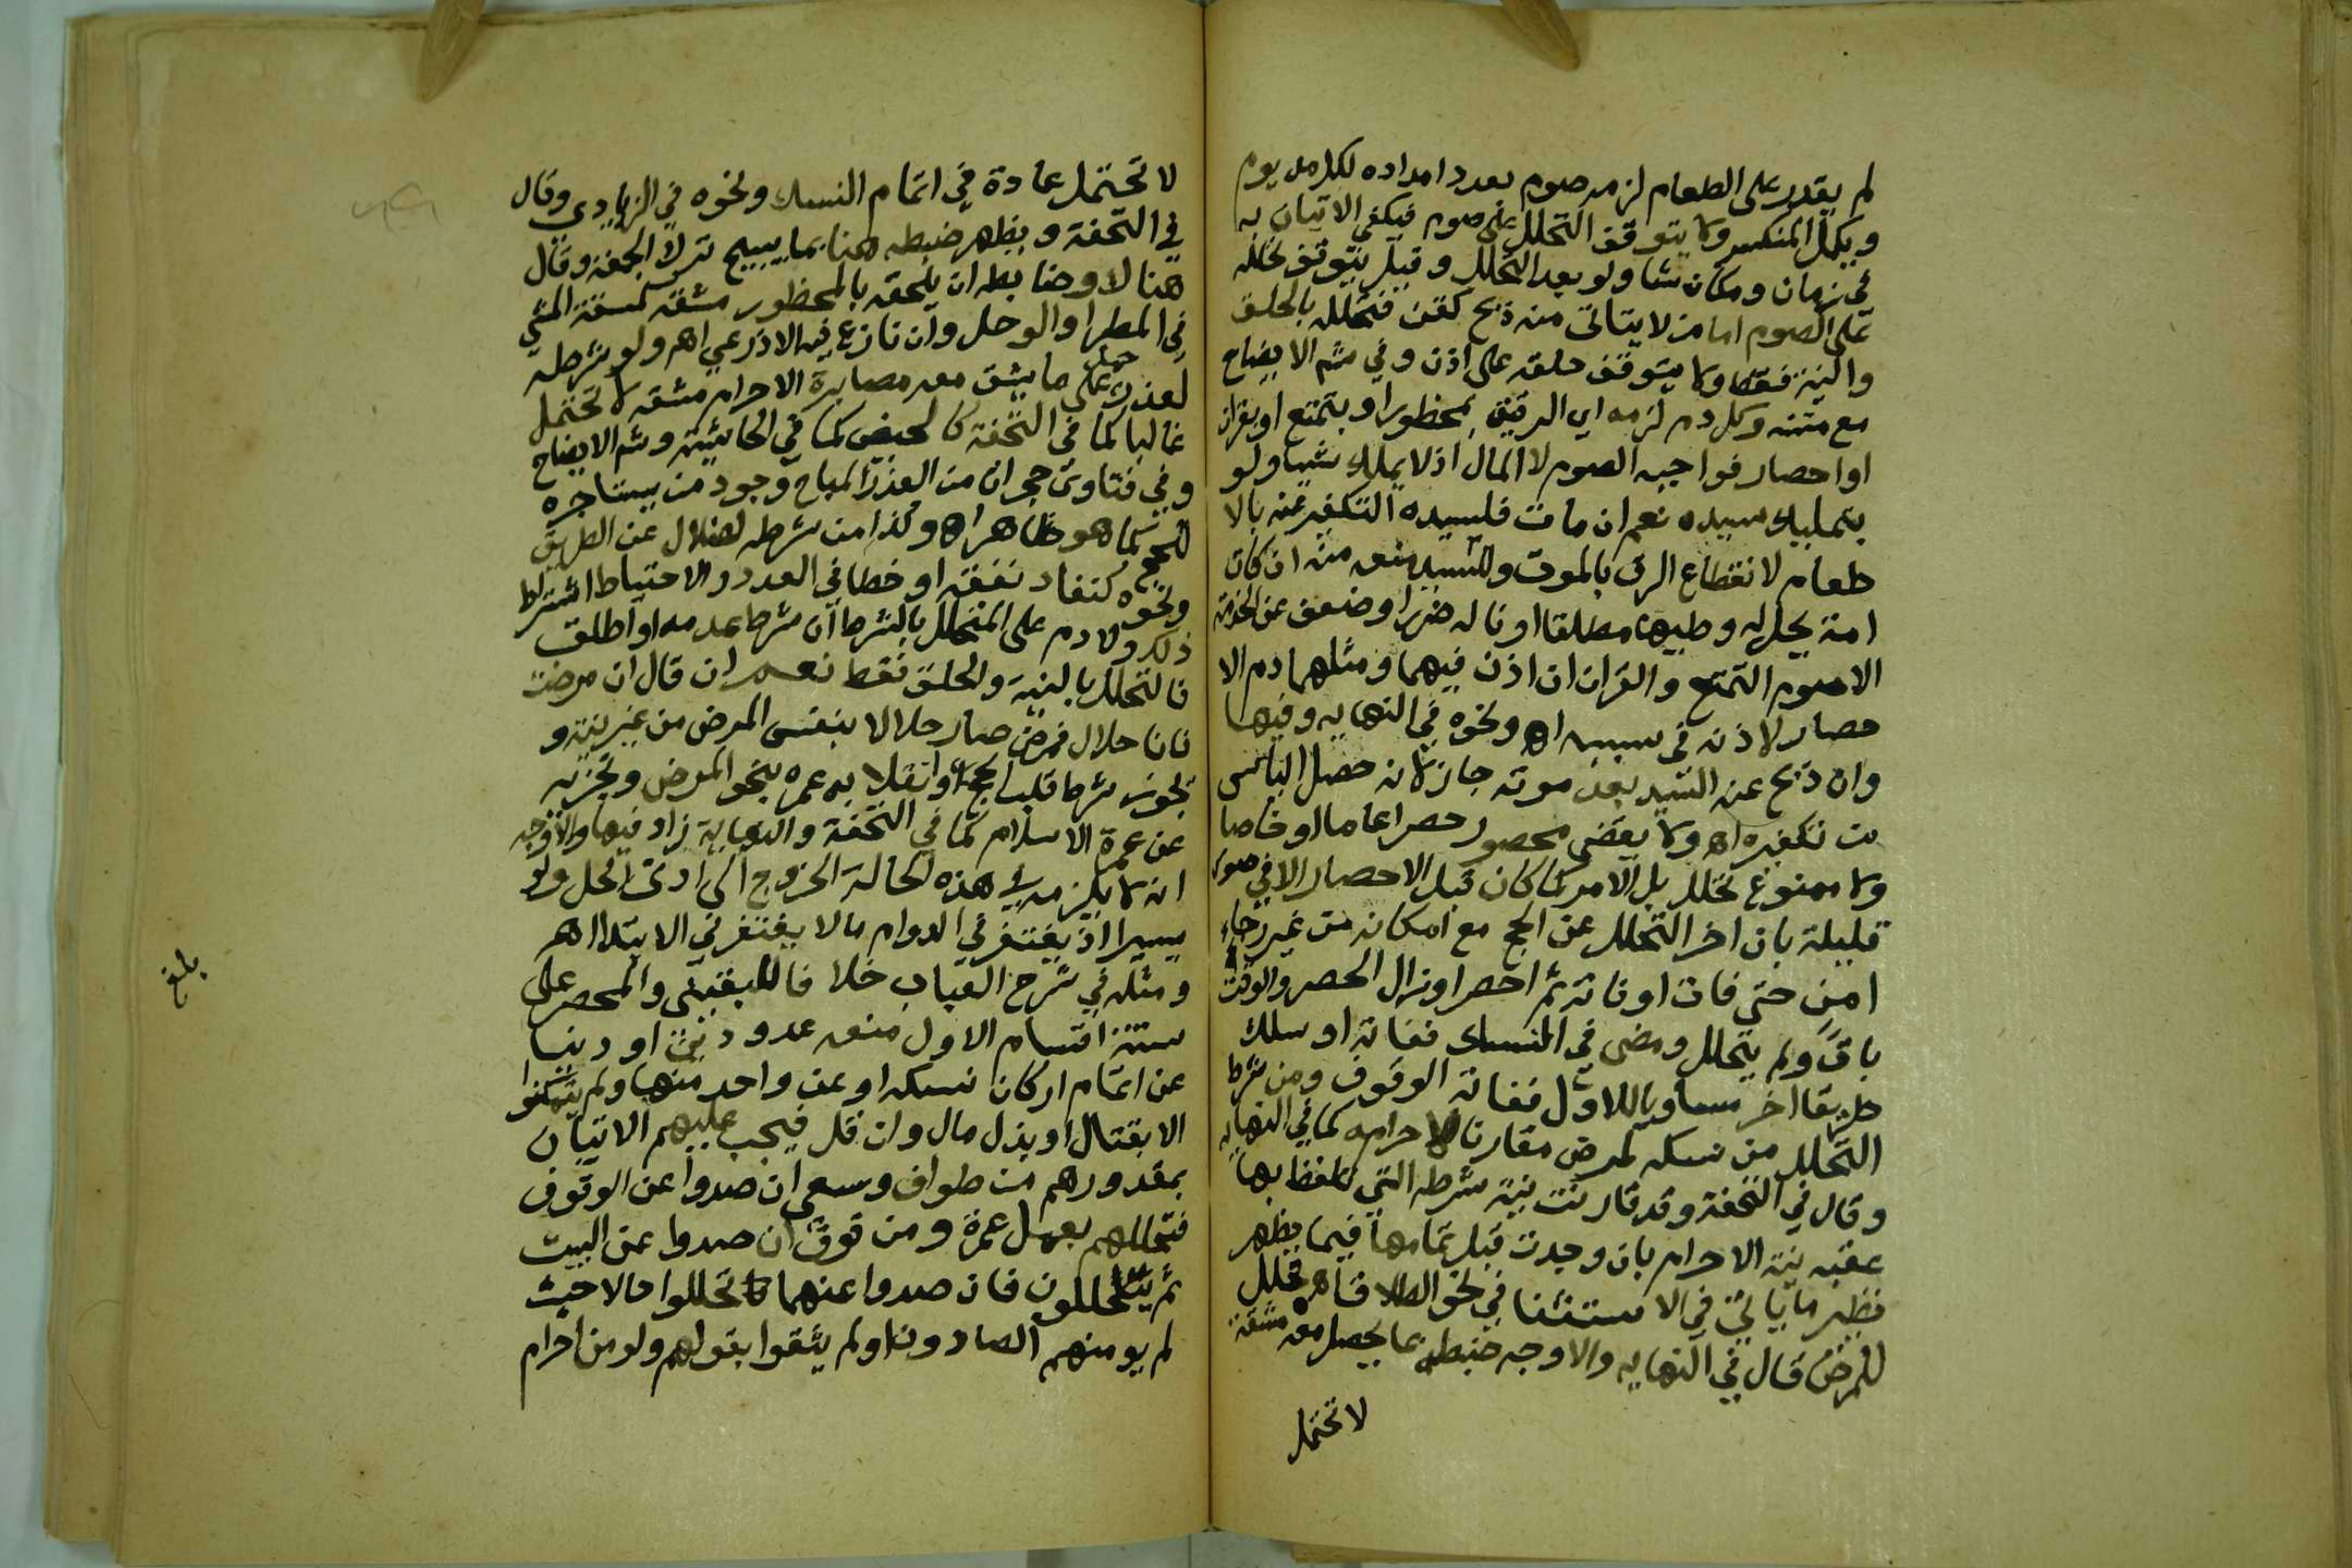 لم يقدر على الطعام لزمه صوم بعدد امداده لكل مد يوم
ويكمل المنكسر ولا يتوقف التحلل على صوم فيكفي الاتيان به
في زمان ومكان شا ولو بعد التحلل وقيل يتوقف تحلله
على الصوم اما من لا يتاتى منه ذبح كقن فتحلله بالحلق
والنية فقط ولا يتوقف حلقه على اذن وفي شم الايضاح
مع متنه وكل دم لزمه اي الرقيق بمحظور او بتمتع او بقران
او احصار فواجبه الصوم لا المال اذ لا يملك شيا ولو
بتمليك سيده نعم ان مات فلسيده التكفير عنه بالا
طعام لانقطاع الرق بالموت وللسيد منعه منه ان كان
امة يحل له وطيها مطلقا او ناله ضررا وضعف عن الخدمة
الا صوم التمتع والقران ان اذن فيهما ومثلهما دم الا
حصار لاذنه في سببه اه ونحوه في النهايه وفيها
وان ذبح عنه السيد بعد موته جاز لانه حصل الياس
من تكفيره اه ولا يقضي محصور حصرا عاما او خاصا
ولا ممنوع تحلل بل الامر كما كان قبل الاحصار الا في صور
قليلة بان اخر التحلل عن الحج مع امكانه من غير رجاء
امن حتى فات او فاته ثم احصر او زال الحصر والوقت
باق ولم يتحلل ومضى في النسك ففاته او سلك
طريقا اخر مساويا للاول ففاته الوقوف ومن شرط
التحلل من نسكه لمرض مقارنا لاحرامه كما في النهايه
وقال في التحفة وقد قارنت نية شرطه التي تلفظ بها
عقبه نية الاحرام بان وجدت قبل تمامها فيما يظهر
نظير ما ياتي في الاستثنا في نحو الطلاق اه تحلل
للمرض قال في النهايه والاوجه ضبطه بما يحصل معه مشقة
لا تحتمل
لا تحتمل عادة في اتمام النسك ونحوه في الزيادي وقال
في التحفة ويظهر ضبطه هنا بما يبيح ترك الجمعة وقال
هناك وضابطه ان يلحقه بالمحظور مشقة كمشقة المشي
في المطر او الوحل وان نازع فيه الاذرعي اه ولو شرطه
لعذر حمل على ما يشق معه مصابرة الاحرام مشقة لا تحتمل
غالبا كما في التحفة كالحيض كما في الحاشية وشم الايضاح
وفي فتاوى حجر ان من العذر المباح وجود من يستاجره
للحج كما هو ظاهر اه وكذا من شرطه لضلال عن الطريق
ونحوه كنفاد نفقة او خطا في العدد والاحتياط اشتراط
ذلك ولا دم على المتحلل بالشرط ان شرط عدمه او اطلق
فالتحلل بالنية والحلق فقط نعم ان قال ان مرضت
فانا حلال فمرض صار حلالا بنفس المرض من غير نية و
يجوز شرط قلب الحج او انقلابه عمره بنحو المرض وتجزيه
عن عمرة الاسلام كما في التحفة والنهاية زاد فيها والاوجه
انه لا يلزمه في هذه الحالة الخروج الى ادنى الحل ولو
يسيرا اذ يغتفر في الدوام ما لا يغتفر في الابتدا اه
ومثله في شرح العباب خلافا للبلقيني والحصر على
ستة اقسام الاول منعه عدو ديني او دنيا
عن اتمام اركان نسكه او عن واحد منها ولم يتمكنوا
الا بقتال او بذل مال وان قل فيجب عليهم الاتيان
بمقدورهم من طواف وسعي ان صدوا عن الوقوف
فتحللهم بعمل عمرة ومن وقوف ان صدوا عن البيت
ثم يتحللون فان صدوا عنهما تحللوا حالا حيث
لم يومنهم الصادون او لم يثقوا بقولهم ولو من احرام
بلغ